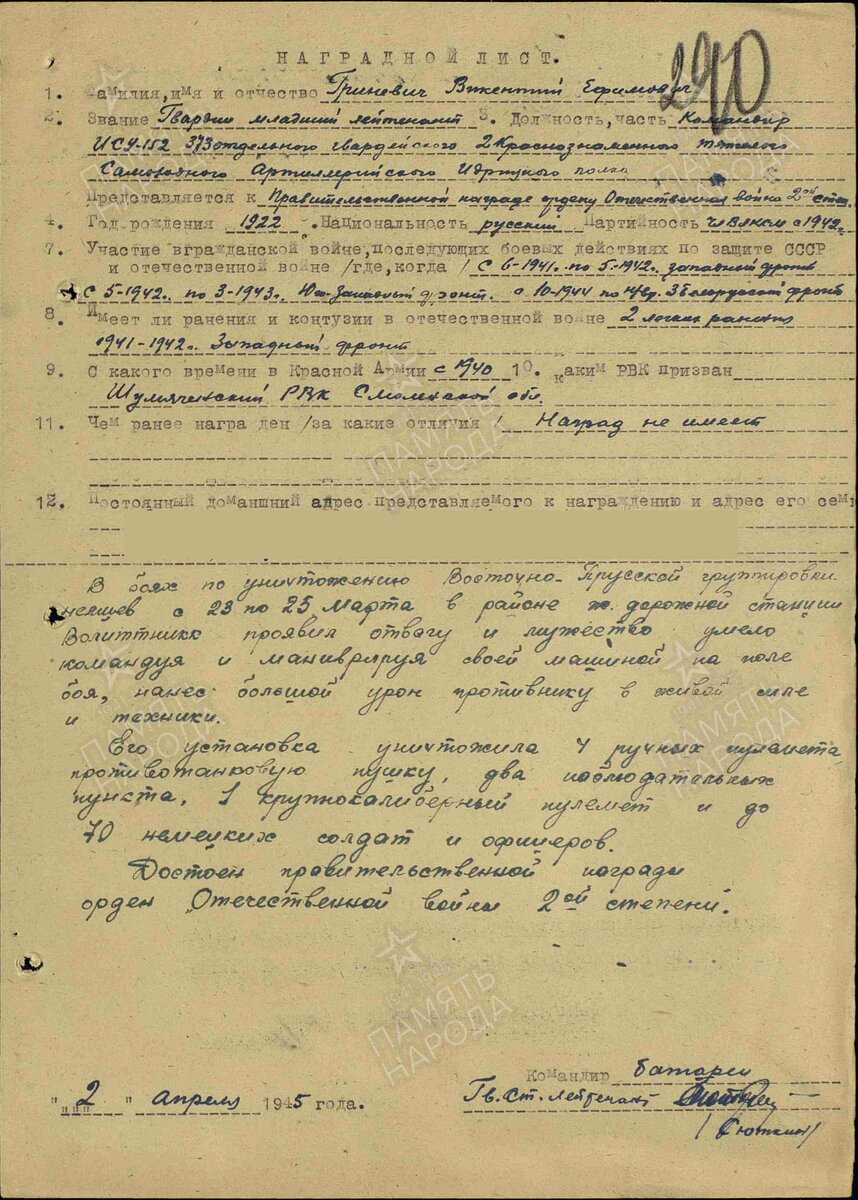 290
НАГРАДНОЙ ЛИСТ.
1. Фамилия, имя и отчество Гриневич Викентий Ефимович
2. Звание Гвардии младший лейтенант 3. Должность, часть Командир
ИСУ-152 373 отдельного гвардейского 2 Краснознаменного тяжелого
Самоходного Артиллерийского полка
Представляется к Правительственной награде ордену Отечественная война 2ой степ.
4. Год рождения 1922. Национальность русский Партийность чл ВЛКСМ с 1942г.
7. Участие в гражданской войне, последующих боевых действиях по защите СССР
и отечественной войне /где, когда/ с 6-1941г. по 5-1942г. западный фронт
с 5-1942г. по 3-1943г. Юго-Западный фронт. с 10-1944 по н/вр. 3 Белорусский фронт
8. Имеет ли ранения и контузии в отечественной войне 2 легких ранения
1941-1942г. Западный фронт
9. С какого времени в Красной Армии с 1940 10. каким РВК призван
Шумяченский РВК Смоленской обл.
11. Чем ранее награ ден /за какие отличия/ Наград не имеет
12. Постоянный доманшний адрес представляемого к награждению и адрес его сем
В боях по уничтожению Восточно-Прусской группировки
немцев с 23 по 25 марта в районе ж. дорожной станции
Волиттникк проявил отвагу и мужество умело
командуя и манивририруя своей машиной на поле
боя, нанес большой урон противнику в живой силе
и техники.
Его установка уничтожила 4 ручных пулемета,
противотанковую пушку, два наблюдательных
пункта, 1 крупнокалиберный пулемет и до
70 немецких солдат и офицеров.
Достоен правительственной награды
орден "Отечественной войны 2ой степени".
Командир батареи
"2" апреля 1945 года. Гв. Ст. лейтенант
/Сюткин/
ПАМЯТЬ
НАРОДА
ПАМЯТЬ
НАРОДА
ПАМЯТЬ
НАРОДА
ПАМЯТЬ
НАРОДА